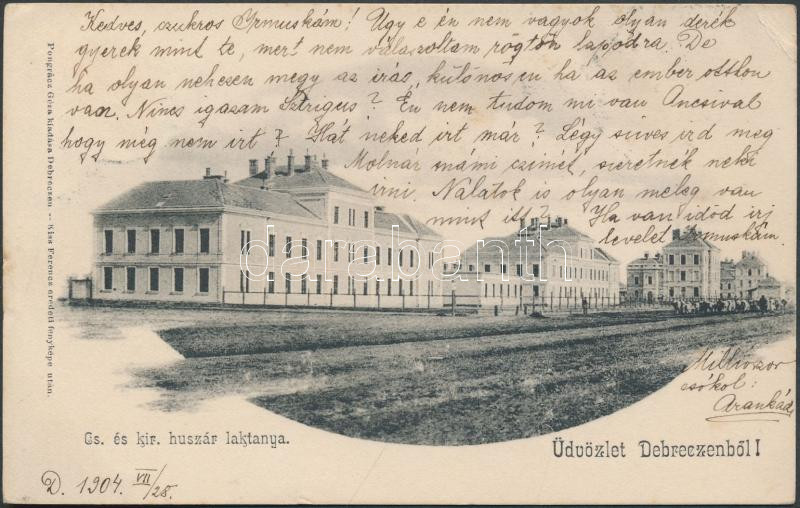 Kedves, czukros Irmuskám! Úgy e én nem vagyok olyan derék
gyerek mint te, mert nem válaszoltam rögtön lapodra. De
ha olyan nehesen megy az irás, különösen ha az ember otthon
van. Nincs igazam Sztrigus? Én nem tudom mi van Ancsival
hogy még nem irt? Hát neked irt már? Légy szives ird meg
Molnár mámi czimét, szeretnék neki
irni. Nálatok is olyan meleg van
mint itt? Ha van időd irj
levelet Irmuskám.
Milliószor
csókol:
Arankád
darabanth
Pongrácz Géza kiadása Debreczen — Kiss Ferencz eredeti fényképe után.
Cs. és kir. huszár laktanya.
Üdvözlet Debreczenből!
D. 1904. VII/28.